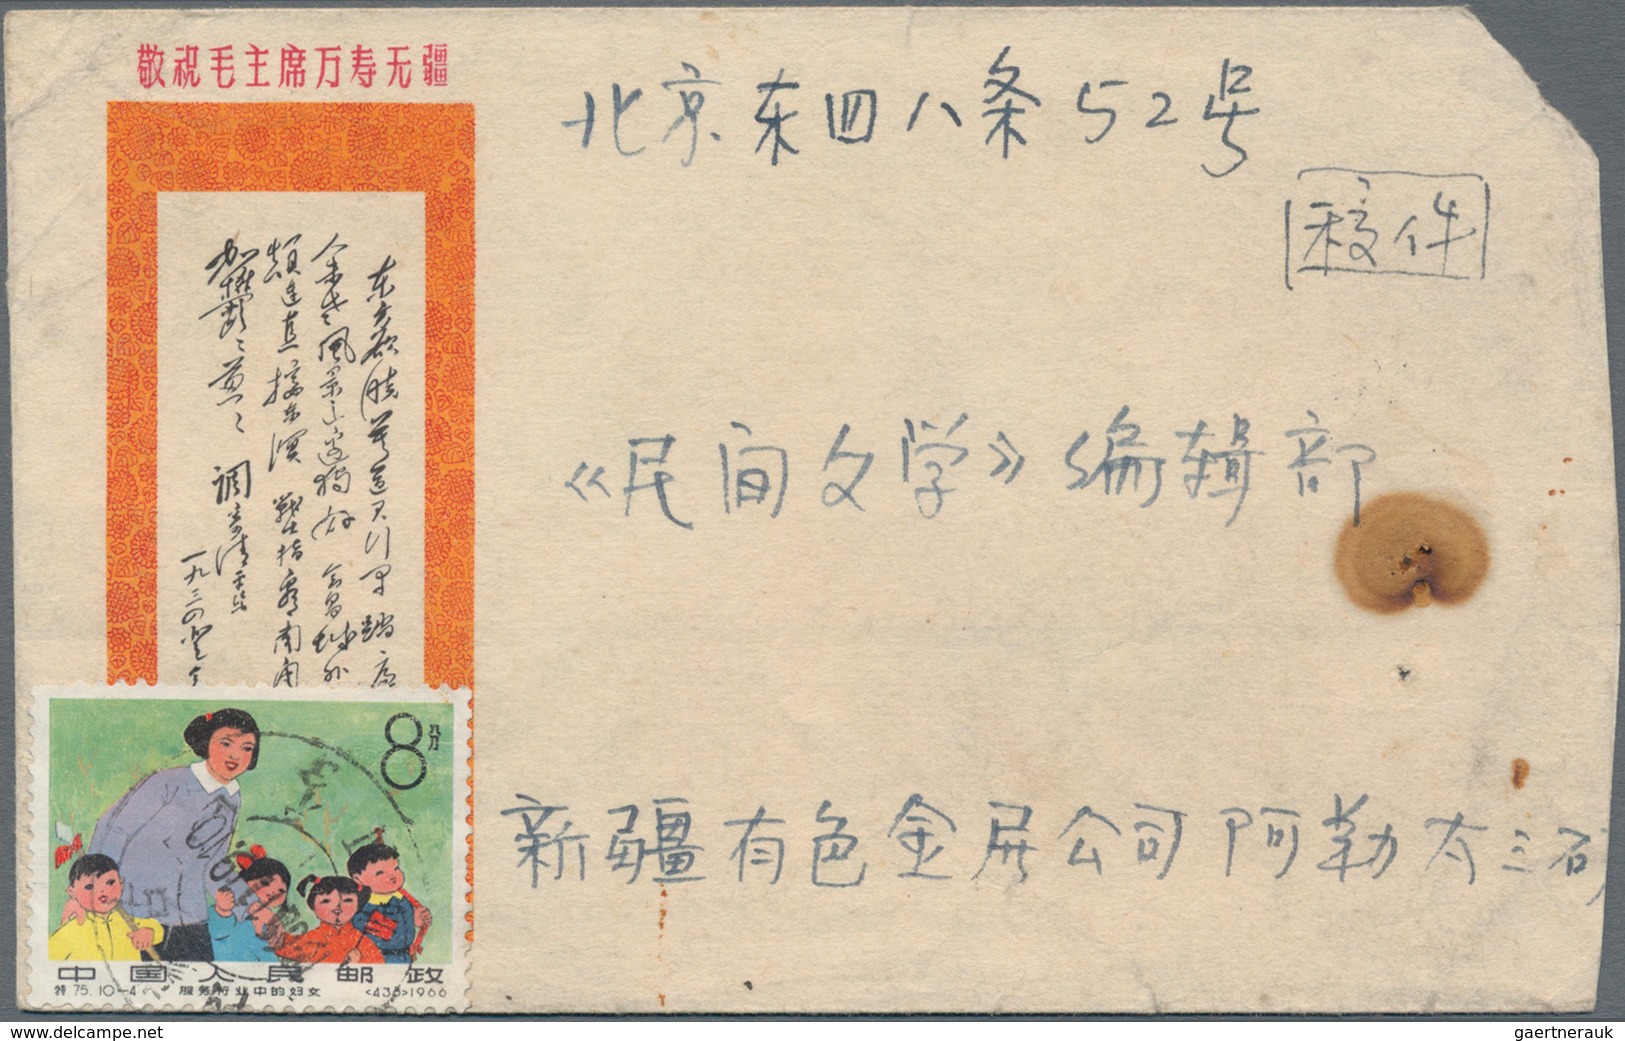 敬祝毛主席万寿无疆
北京东四八条52号
稿件
东方欲晓莫道君行早踏
人未老风景这边独好 会昌城外
颠连直接东溟 战士指看南
郁郁葱葱 调寄清平乐
一九三四
《民间文学》编辑部
新疆有色金属公司阿勒太三矿
8分
中国人民邮政
特75.10-4 服务行业中的妇女 1966
www.delcampe.net
gaertnerauk